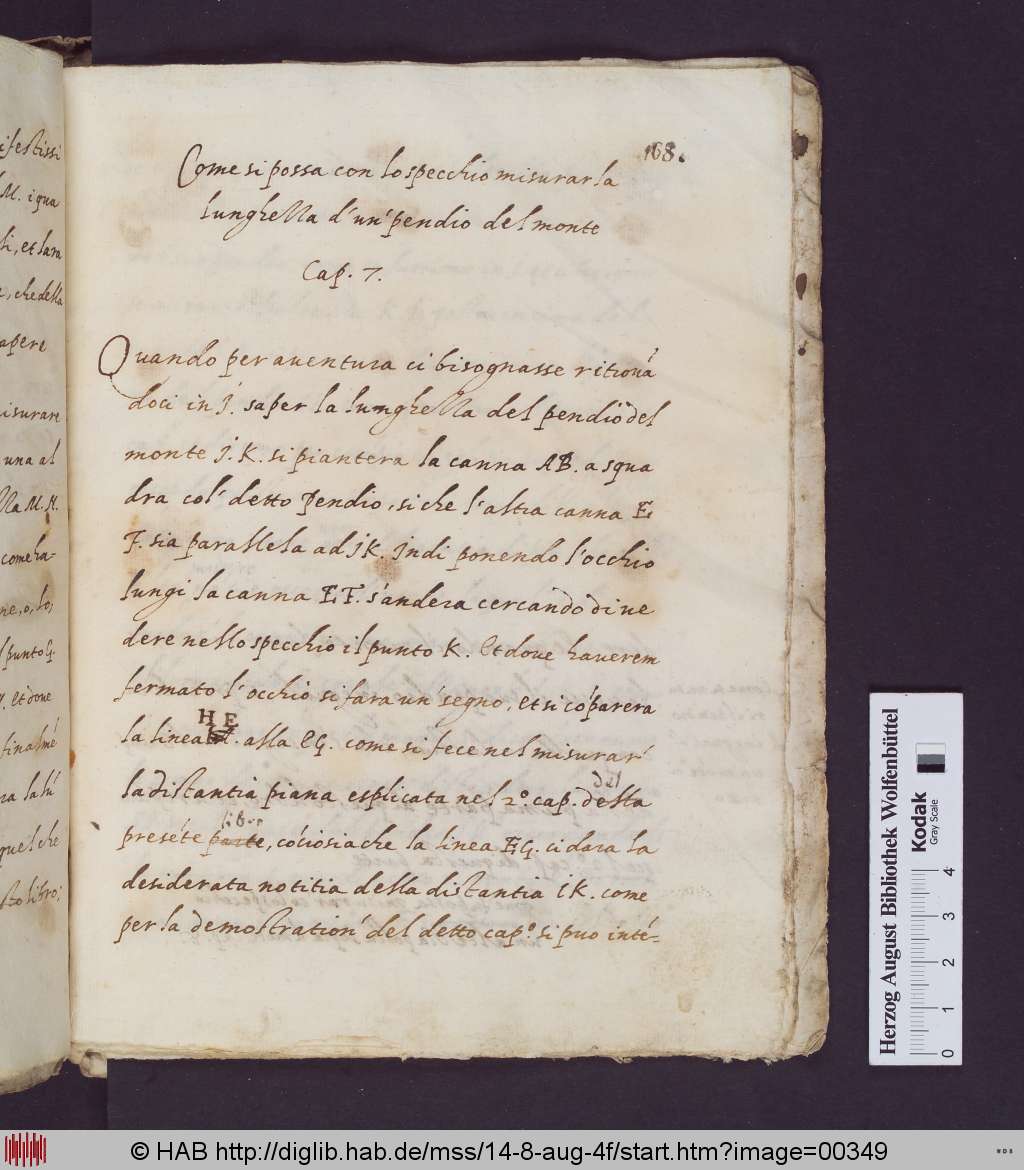 168.
Come si possa con lo specchio misurar la
lunghezza d'un' pendio del monte
Cap. 7.
Quando per auentura ci bisognasse ritrouá
doci in J. saper la lunghezza del pendio del
monte J. K. si piantera la canna AB. a squa
dra col' detto pendio, si che l'altra canna E.
F. sia parallela ad JK. Jndi ponendo l'occhio
lungi la canna E.F. s'andera cercando di ue
dere nello specchio il punto K. Et doue hauerem
fermato l'occhio si fara un' segno, et si cóparera
H E
la linea . alla EG. come si fece nel misurar'
la distantia piana esplicata nel 2º. cap. della
del
preséte parte, cóciosia che la linea EG. ci dara la
libro
desiderata notitia della distantia IK. come
per la demostration' del detto capº. si puo inté-
ifestissi
M. i qua
li, et sara
, che della
apere
isurare
una al
lla M. N.
come ha-
ne, o, lo,
l punto G.
. et doue
finalmé
ra la lú
quel che
sto libro;
Herzog August Bibliothek Wolfenbüttel
Kodak
Gray Scale
0 1 2 3 4
© HAB http://diglib.hab.de/mss/14-8-aug-4f/start.htm?image=00349